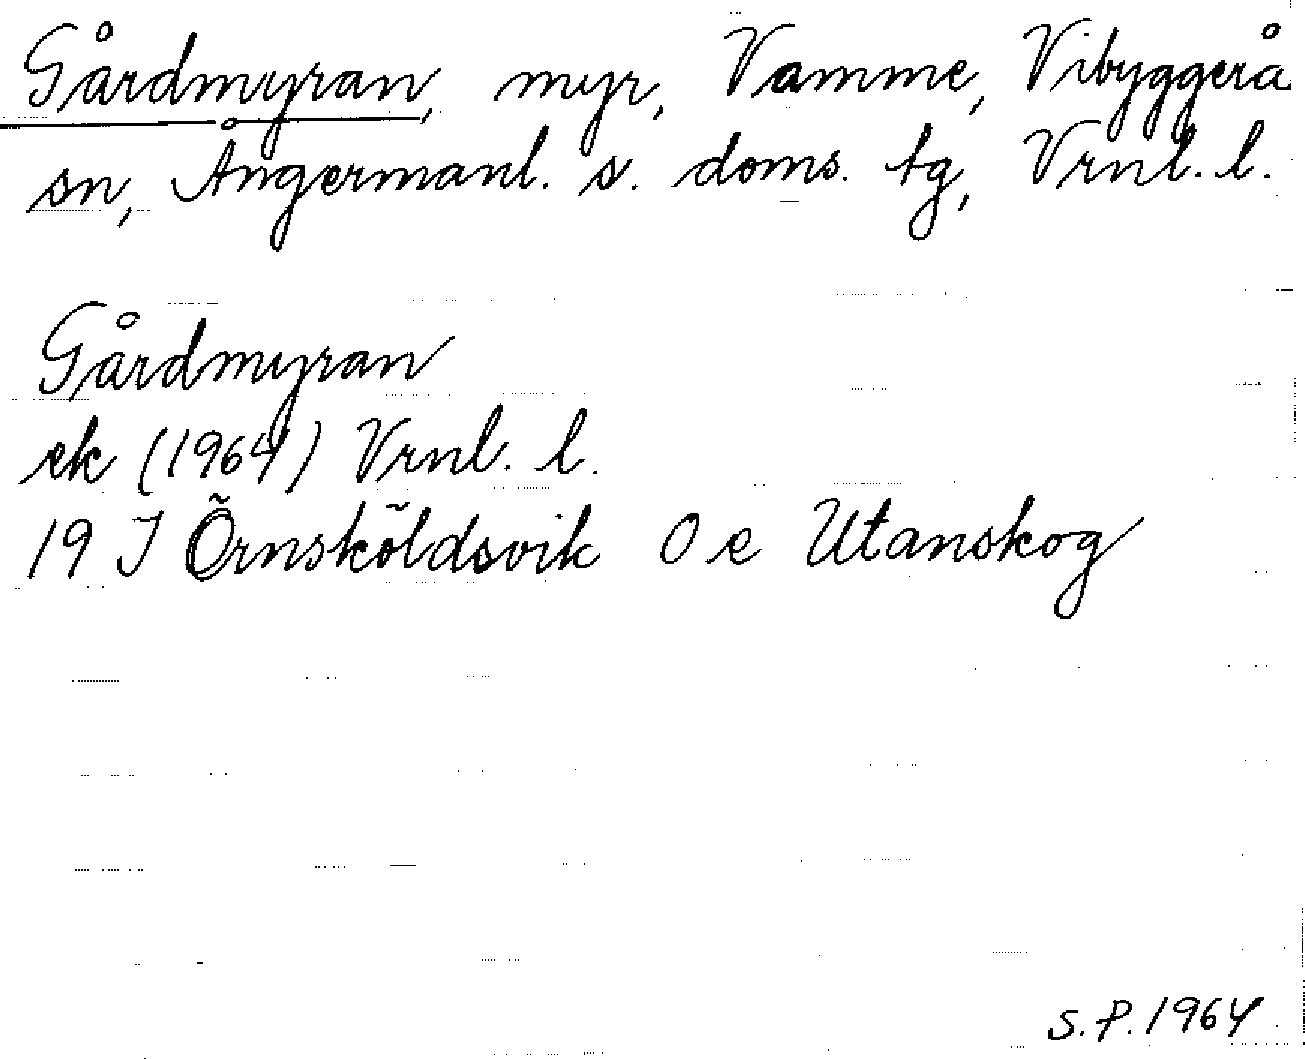 Gårdmyran, myr, Vamme, Vibyggerå
sn, Ångermanl. s. doms. tg, Vrnl. l.
Gårdmyran
ek (1964) Vrnl. l.
19 I Örnsköldsvik 0 e Utanskog
S.P. 1964